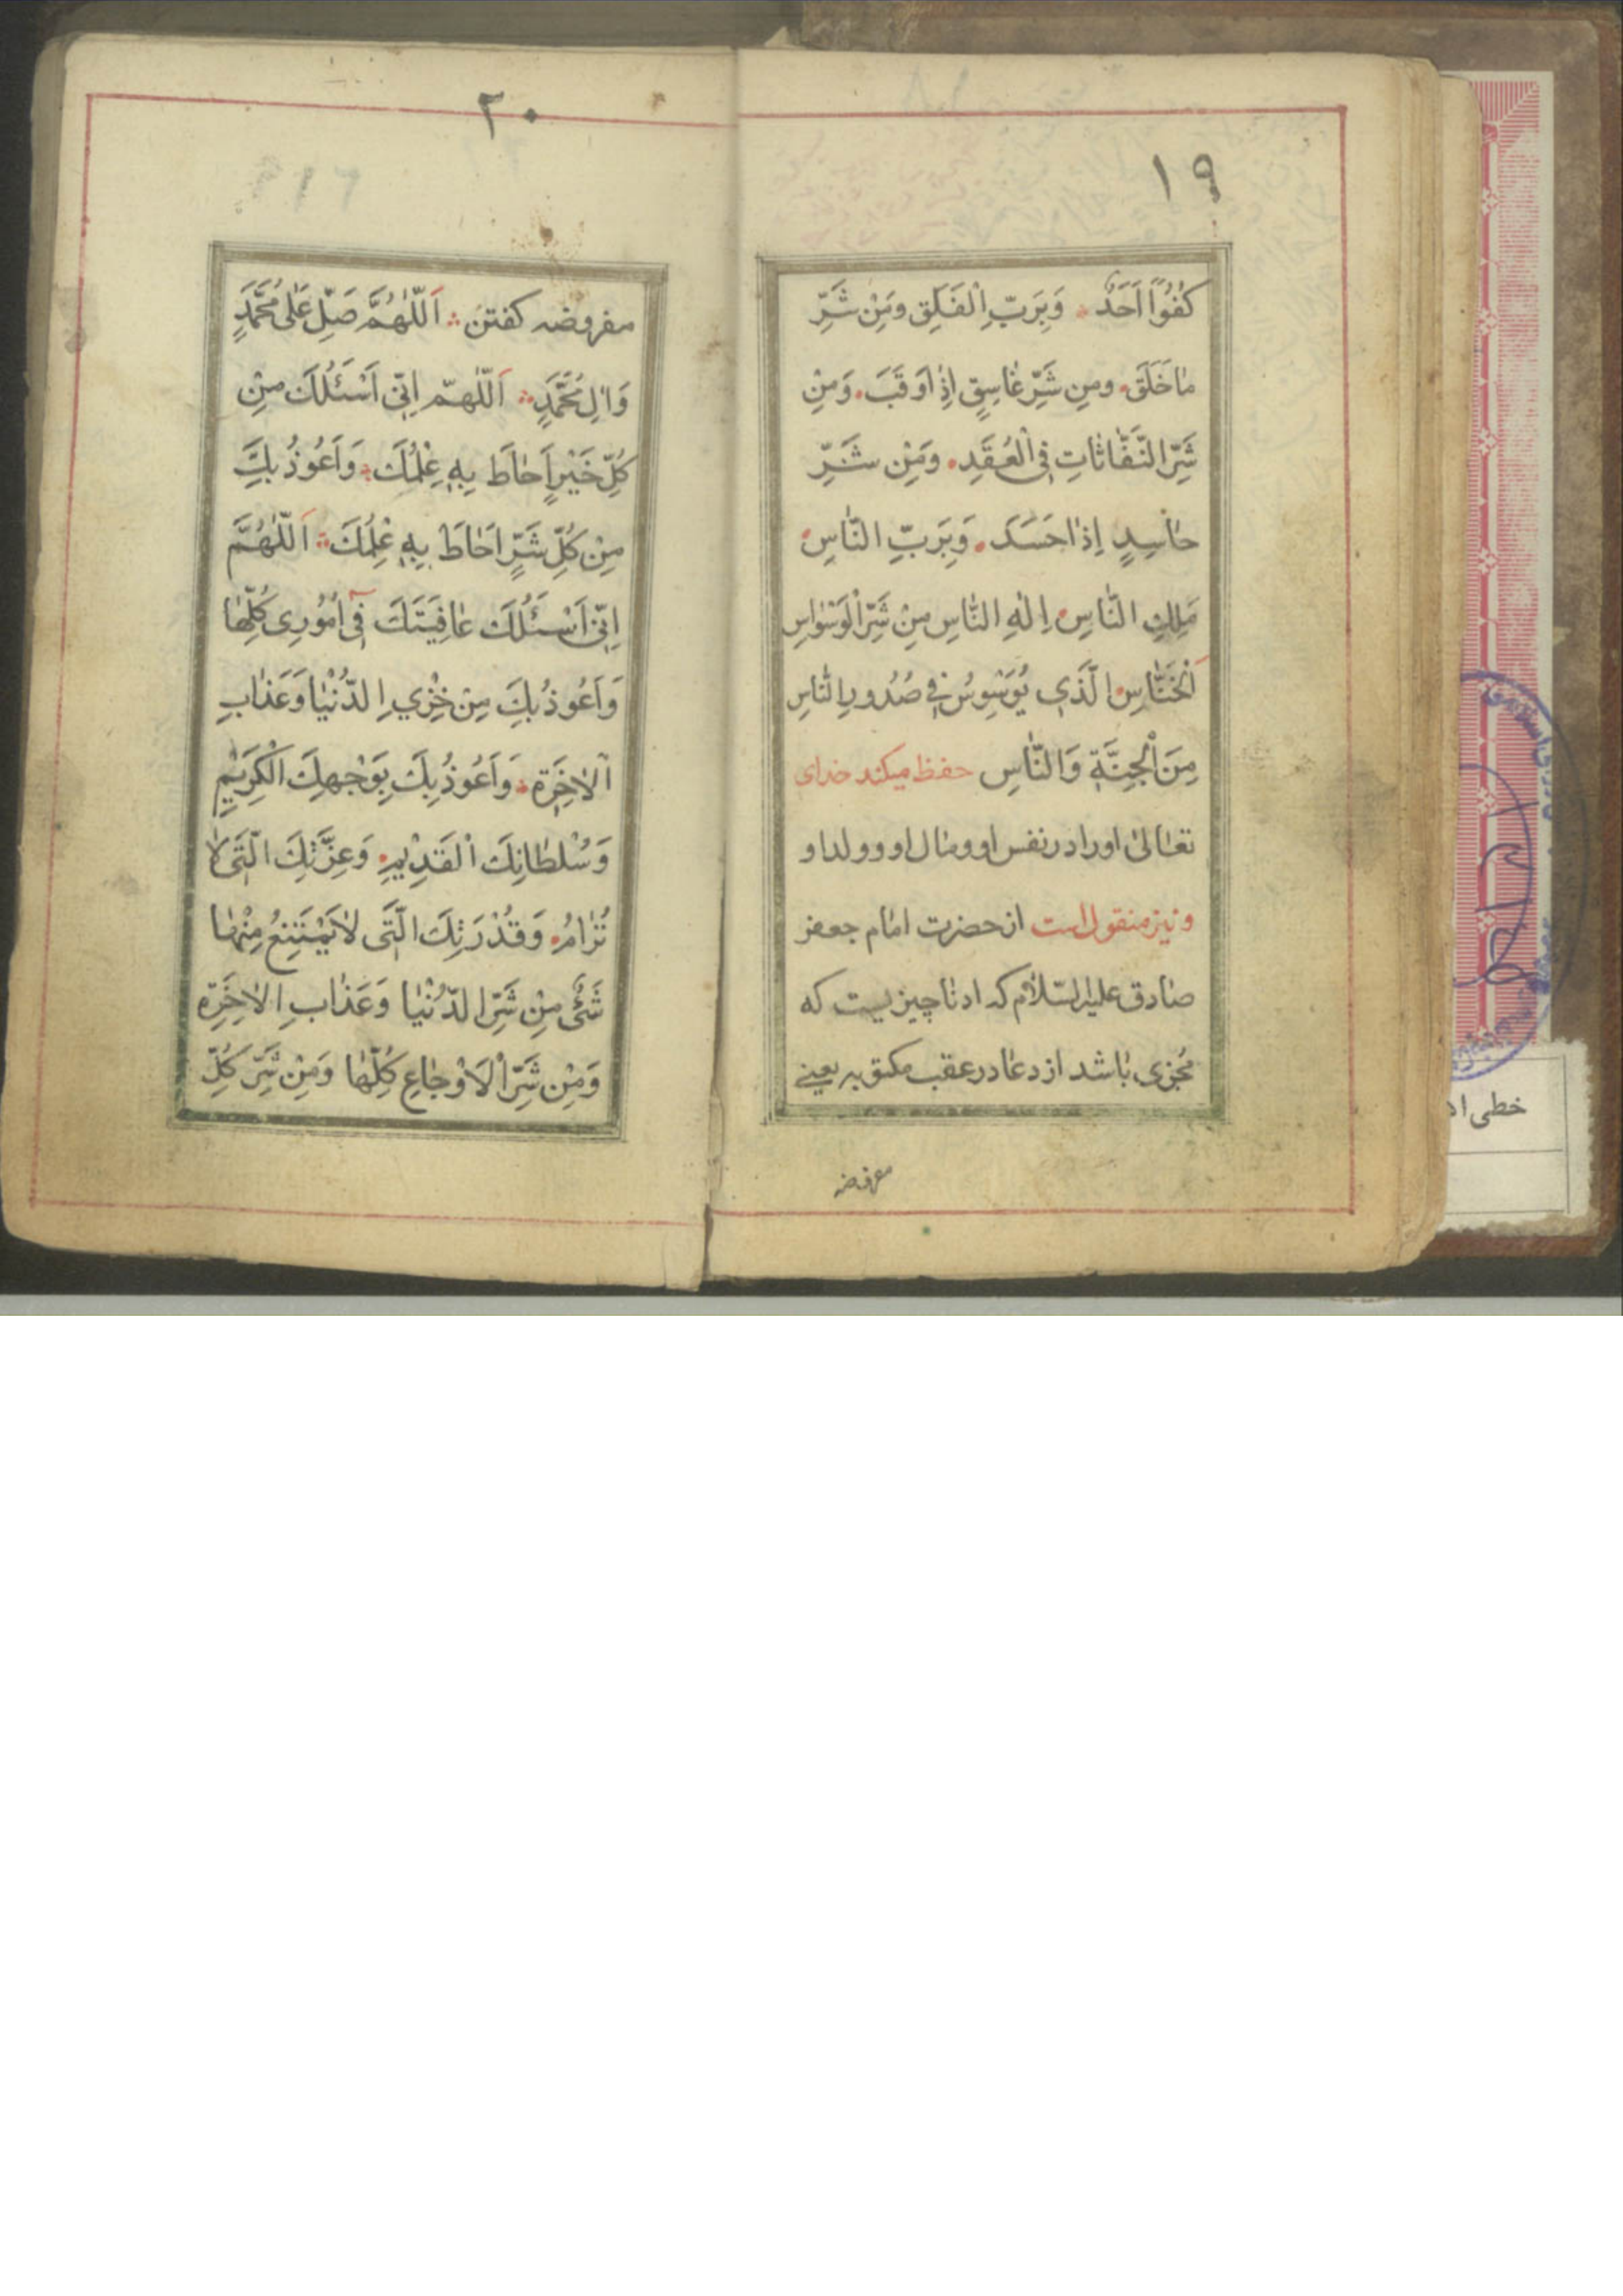 ١٩
كُفُوًا اَحَدٌ وَبِرَبِّ الْفَلَقِ وَمِنْ شَرِّ
مٰا خَلَقَ وَمِن شَرِّ غٰاسِقٍ اِذٰا وَقَبَ وَمِنْ
شَرِّ النَّفّٰاثٰاتِ فِی الْعُقَدِ وَمِنْ شَرِّ
حٰاسِدٍ اِذٰا حَسَدَ وَبِرَبِّ النّٰاسِ
مَلِكِ النّٰاسِ اِلٰهِ النّٰاسِ مِنْ شَرِّ الْوَسْوٰاسِ
اَلْخَنّٰاسِ الَّذی يُوَسْوِسُ فی صُدُورِ النّٰاسِ
مِنَ الْجِنَّةِ وَالنّٰاسِ حفظ میکند خدای
تعٰالیٰ او را در نفس او و مٰال او و ولد او
و نیز منقول است از حضرت امٰام جعفر
صٰادق علیه السّلٰام که ادنٰا چیزیست که
مُجزی بٰاشد از دعٰا در عقب مکتوبه یعنی
مفروضه
٢٠
مفروضه کفتن اَللّٰهُمَّ صَلِّ عَلٰی مُحَمَّدٍ
وَاٰلِ مُحَمَّدٍ اَللّٰهمّ اِنّی اَسْئَلُكَ مِنْ
كُلِّ خَيْرٍ اَحٰاطَ بِهِ عِلْمُكَ وَاَعُوذُ بِكَ
مِنْ كُلِّ شَرٍّ اَحٰاطَ بِهِ عِلْمُكَ اَللّٰهُمَّ
اِنّی اَسْئَلُكَ عٰافِيَتَكَ فی اُمُوری كُلِّهٰا
وَاَعُوذُ بِكَ مِنْ خِزْیِ الدُّنْيٰا وَعَذٰابِ
الْاٰخِرَةِ وَاَعُوذُ بِكَ بِوَجْهِكَ الْكَرِيْمِ
وَسُلْطٰانِكَ الْقَدِيْمِ وَعِزَّتِكَ الَّتی لٰا
تُرٰامُ وَقُدْرَتِكَ الَّتی لٰا يَمْتَنِعُ مِنْهٰا
شَیْءٌ مِنْ شَرِّ الدُّنْيٰا وَعَذٰابِ الْاٰخِرَةِ
وَمِنْ شَرِّ الْاَوْجٰاعِ كُلِّهٰا وَمِنْ شَرِّ كُلِّ
خطی اد